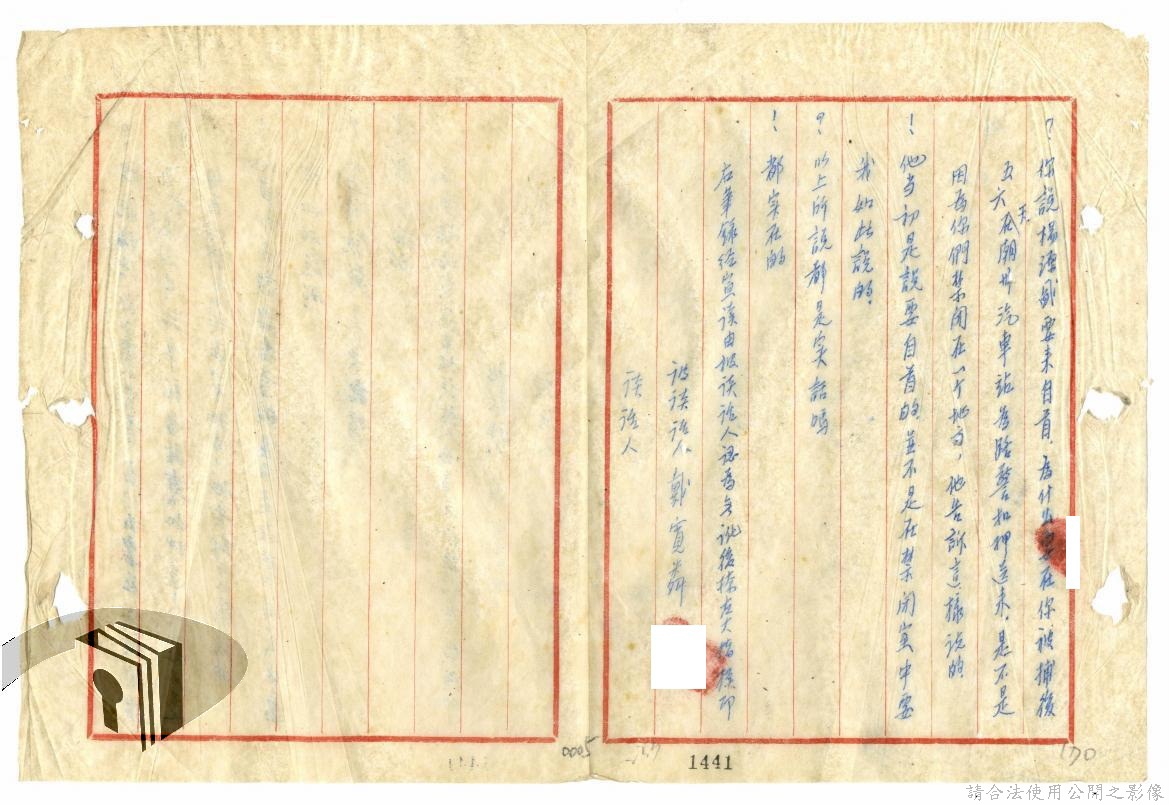 ? 你說楊 要来自首,為什 在你被捕後
五六天在廟 汽車站為路警扣押送来,是不是
因為你們禁闭在一个地方,他告訴這樣说的
! 他当初是説要自首的並不是在禁闭室中要
我如此説的.
? 以上所說都是实話嗎
! 都实在的
右筆錄经宣读由被谈话人認為無訛後捺左大指模印
被谈话人戴寶
谈话人
0005
1441
170
請合法使用公開之影像